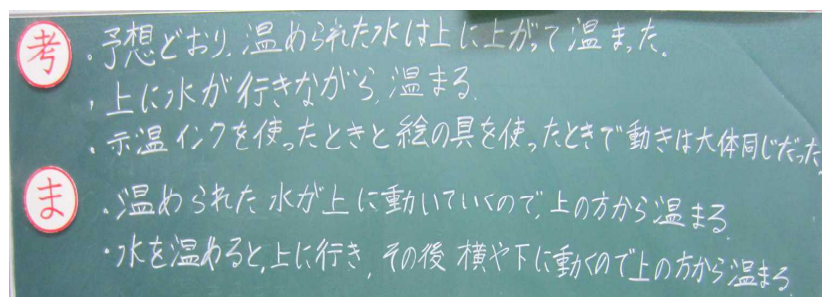 考
・予想どおり、温められた水は上に上がって温まった。
・上に水が行きながら、温まる。
・示温インクを使ったときと絵の具を使ったときで動きは大体同じだった。
ま
・温められた水が上に動いていくので、上の方から温まる。
・水を温めると、上に行き、その後横や下に動くので上の方から温まる。